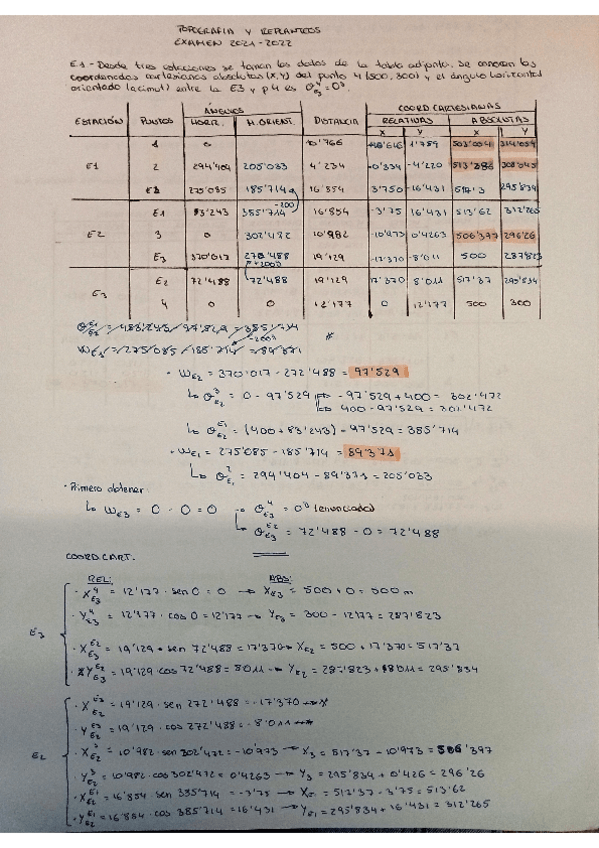 TOPOGRAFIA Y REPLANTEOS
EXAMEN 2021-2022
E1 - Desde tres estaciones se toman los datos de la tabla adjunta. Se conocen las
coordenadas cartesianas absolutas (X,Y) del punto 4 (500, 300) y el ángulo horizontal
orientado (acimut) entre la E3 y p4 es θ_E3^4 = 0g
ÁNGULOS COORD CARTESIANAS
ESTACIÓN PUNTOS HORIZ. H.ORIENT. DISTANCIA RELATIVAS ABSOLUTAS
X Y X Y
1 0 10'766 1'759 314'054
E1 2 294'404 205'033 4'234 -0'334 -4'220
E2 275'085 185'714 16'854 3'750 -16'431 295'834
-200
E1 83'243 385'714 16'854 -3'75 16'431 513'62 312'265
E2 3 0 302'472 10'982 -10'973 0'4263 506'397 296'26
E3 370'017 272'488 19'129 -17'370 -8'011 500 287'823
+200
E2 72'488 72'488 19'129 17'370 8'011 517'37 295'834
E3
4 0 0 12'177 0 12'177 500 300
θ_E2^E1 = 483'243 - 97'529 = 385'714
-200
W_E1 = 275'085 - 185'714 = 89'371
· W_E2 = 370'017 - 272'488 = 97'529
↳ θ_E2^3 = 0 - 97'529 → -97'529 + 400 = 302'472
↳ 400 - 97'529 = 302'472
↳ θ_E2^E1 = (400 + 83'243) - 97'529 = 385'714
· W_E1 = 275'085 - 185'714 = 89'371
↳ θ_E1^2 = 294'404 - 89'371 = 205'033
· Primero obtener:
↳ W_E3 = 0 - 0 = 0 → θ_E3^4 = 0g (enunciado)
↳ θ_E3^E2 = 72'488 - 0 = 72'488
COORD.CART.
REL: ABS:
E3
· X_E3^4 = 12'177 · sen 0 = 0 → X_E3 = 500 + 0 = 500 m
· Y_E3^4 = 12'177 · cos 0 = 12'177 → Y_E3 = 300 - 12'177 = 287'823
· X_E3^E2 = 19'129 · sen 72'488 = 17'370 → X_E2 = 500 + 17'370 = 517'37
· Y_E3^E2 = 19'129 cos 72'488 = 8'011 → Y_E2 = 287'823 + 8'011 = 295'834
E2
· X_E2^E3 = 19'129 · sen 272'488 = -17'370
· Y_E2^E3 = 19'129 · cos 272'488 = -8'011
· X_E2^3 = 10'982 · sen 302'472 = -10'973 → X_3 = 517'37 - 10'973 = 506'397
· Y_E2^3 = 10'982 · cos 302'472 = 0'4263 → Y_3 = 295'834 + 0'426 = 296'26
· X_E2^E1 = 16'854 sen 385'714 = -3'75 → X_E1 = 517'37 - 3'75 = 513'62
· Y_E2^E1 = 16'854 cos 385'714 = 16'431 → Y_E1 = 295'834 + 16'431 = 312'265